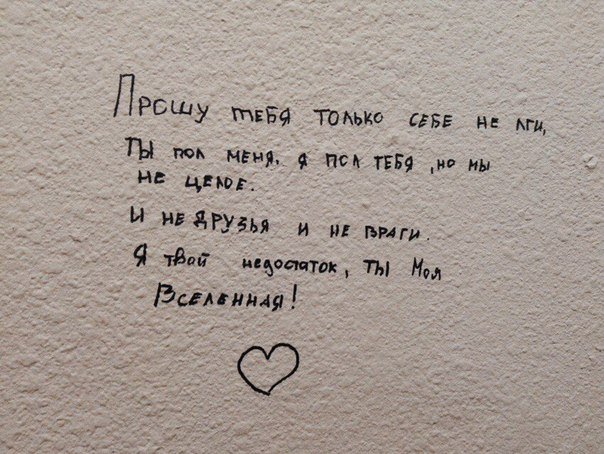 Прошу тебя только себе не лги,
ты пол меня, я пол тебя, но мы
не целое.
И не друзья и не враги.
Я твой недостаток, ты Моя
Вселенная!